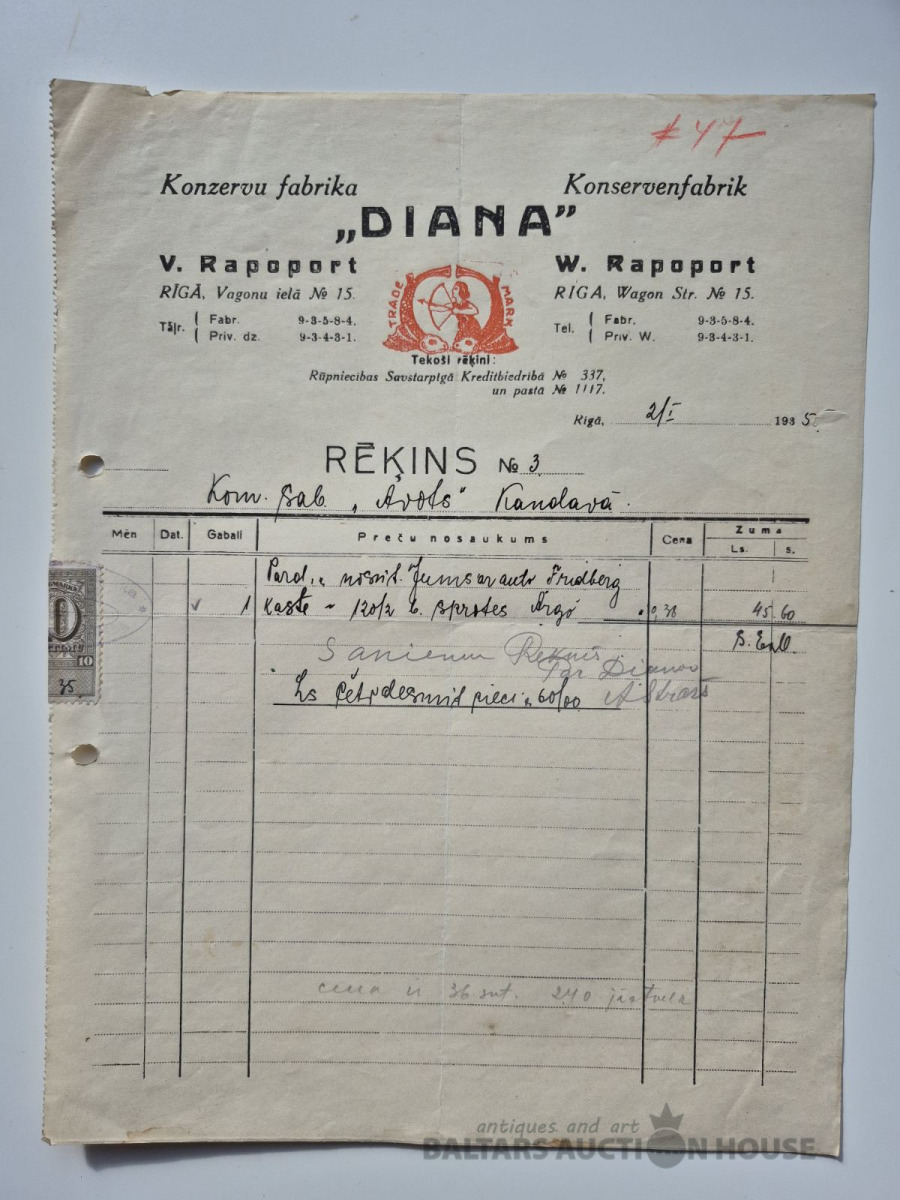 # 47
Konzervu fabrika Konservenfabrik
„DIANA”
V. Rapoport W. Rapoport
RĪGĀ, Vagonu ielā № 15. RIGA, Wagon Str. № 15.
Tāļr. { Fabr. 9-3-5-8-4. Tel. { Fabr. 9-3-5-8-4.
Priv. dz. 9-3-4-3-1. Priv. W. 9-3-4-3-1.
TRADE MARK
Tekoši rēķini:
Rūpniecības Savstarpīgā Kreditbiedrībā № 337,
un pastā № 1117.
Rīgā, 2/I 1935
RĒĶINS № 3
Kom. sab. „Avots“ Kandavā.
Mēn Dat. Gabali Preču nosaukums Cena Zuma
Ls. s.
Jums ar auto Fridberg
1 Kaste 120/2 sprotes 0,38 45.60
10
35
Ls četrdesmit pieci 60/00
cena ir 36 snt. 240
antiques and art
BALTARS AUCTION HOUSE